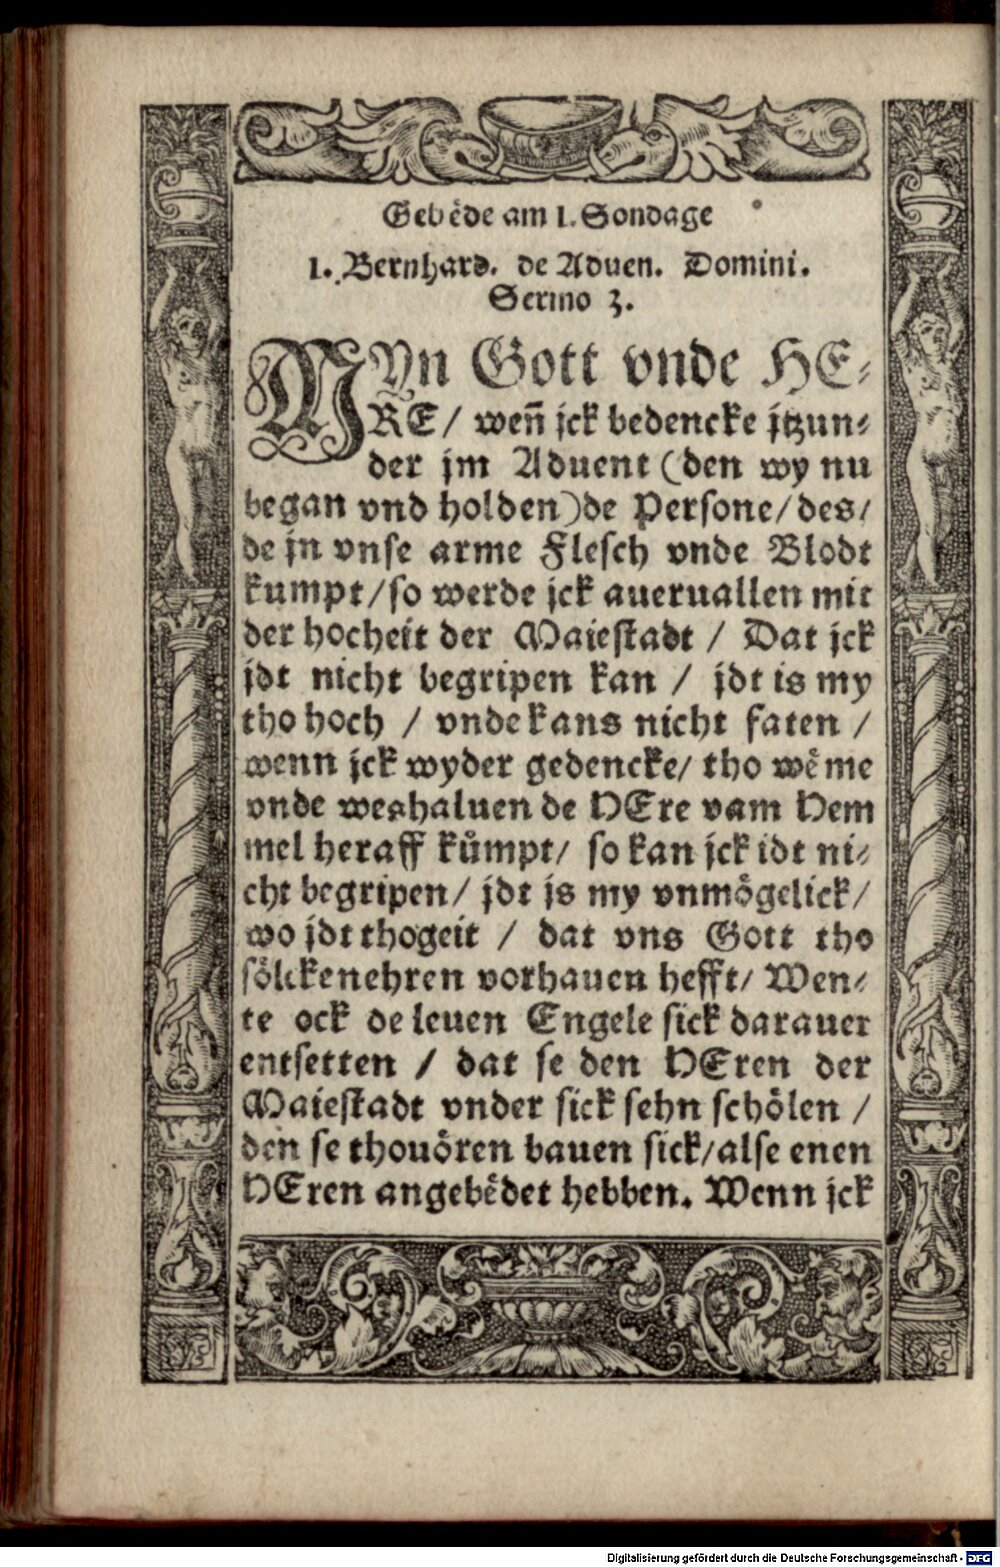 Gebêde am 1. Sondage
1. Bernhard. de Aduen. Domini.
Sermo 3.
MYn Gott vnde HE⸗
RE/ weñ jck bedencke jtzun⸗
der jm Aduent (den wy nu
began vnd holden) de Persone/ des/
de jn vnse arme Flesch vnde Blodt
kumpt/ so werde jck aueruallen mit
der hocheit der Maiestadt / Dat jck
jdt nicht begripen kan / jdt is my
tho hoch / vnde kans nicht faten /
wenn jck wyder gedencke/ tho wême
vnde weshaluen de HEre vam Hem
mel heraff kůmpt/ so kan jck idt ni⸗
cht begripen/ jdt js my vnmögelick/
wo jdt thogeit / dat vns Gott tho
sölckenehren vorhauen hefft/ Wen⸗
te ock de leuen Engele sick darauer
entsetten / dat se den HEren der
Maiestadt vnder sick sehn schölen /
den se thouören bauen sick/ alse enen
HEren angebêdet hebben. Wenn jck
Digitalisierung gefördert durch die Deutsche Forschungsgemeinschaft - DFG